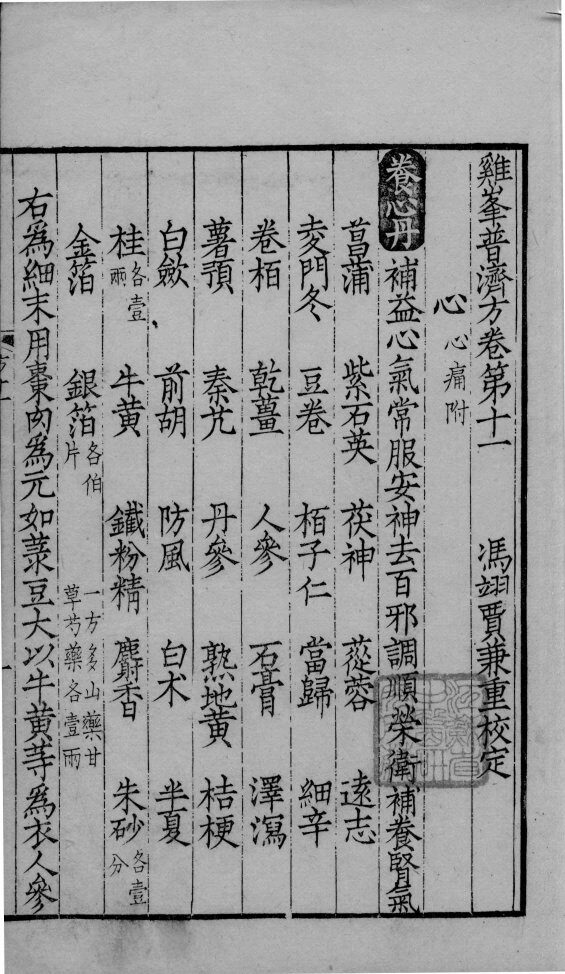 雞峯普濟方卷第十一 馮翊賈兼重校定
心 心痛附
養心丹 補益心氣常服安神去百邪調順榮衛補養腎氣
菖蒲 紫石英 茯神 蓯蓉 遠志
麦門冬 豆卷 栢子仁 當歸 細辛
卷栢 乾薑 人參 石膏 澤瀉
薯蕷 秦艽 丹參 熟地黄 桔梗
白歛 前胡 防風 白术 半夏
桂各壹兩 牛黄 鐵粉精 麝香 朱砂各壹分
金箔 銀箔各伯片 一方多山藥甘草芍藥各壹兩
右爲細末用棗肉爲元如菉豆大以牛黄等爲衣人參